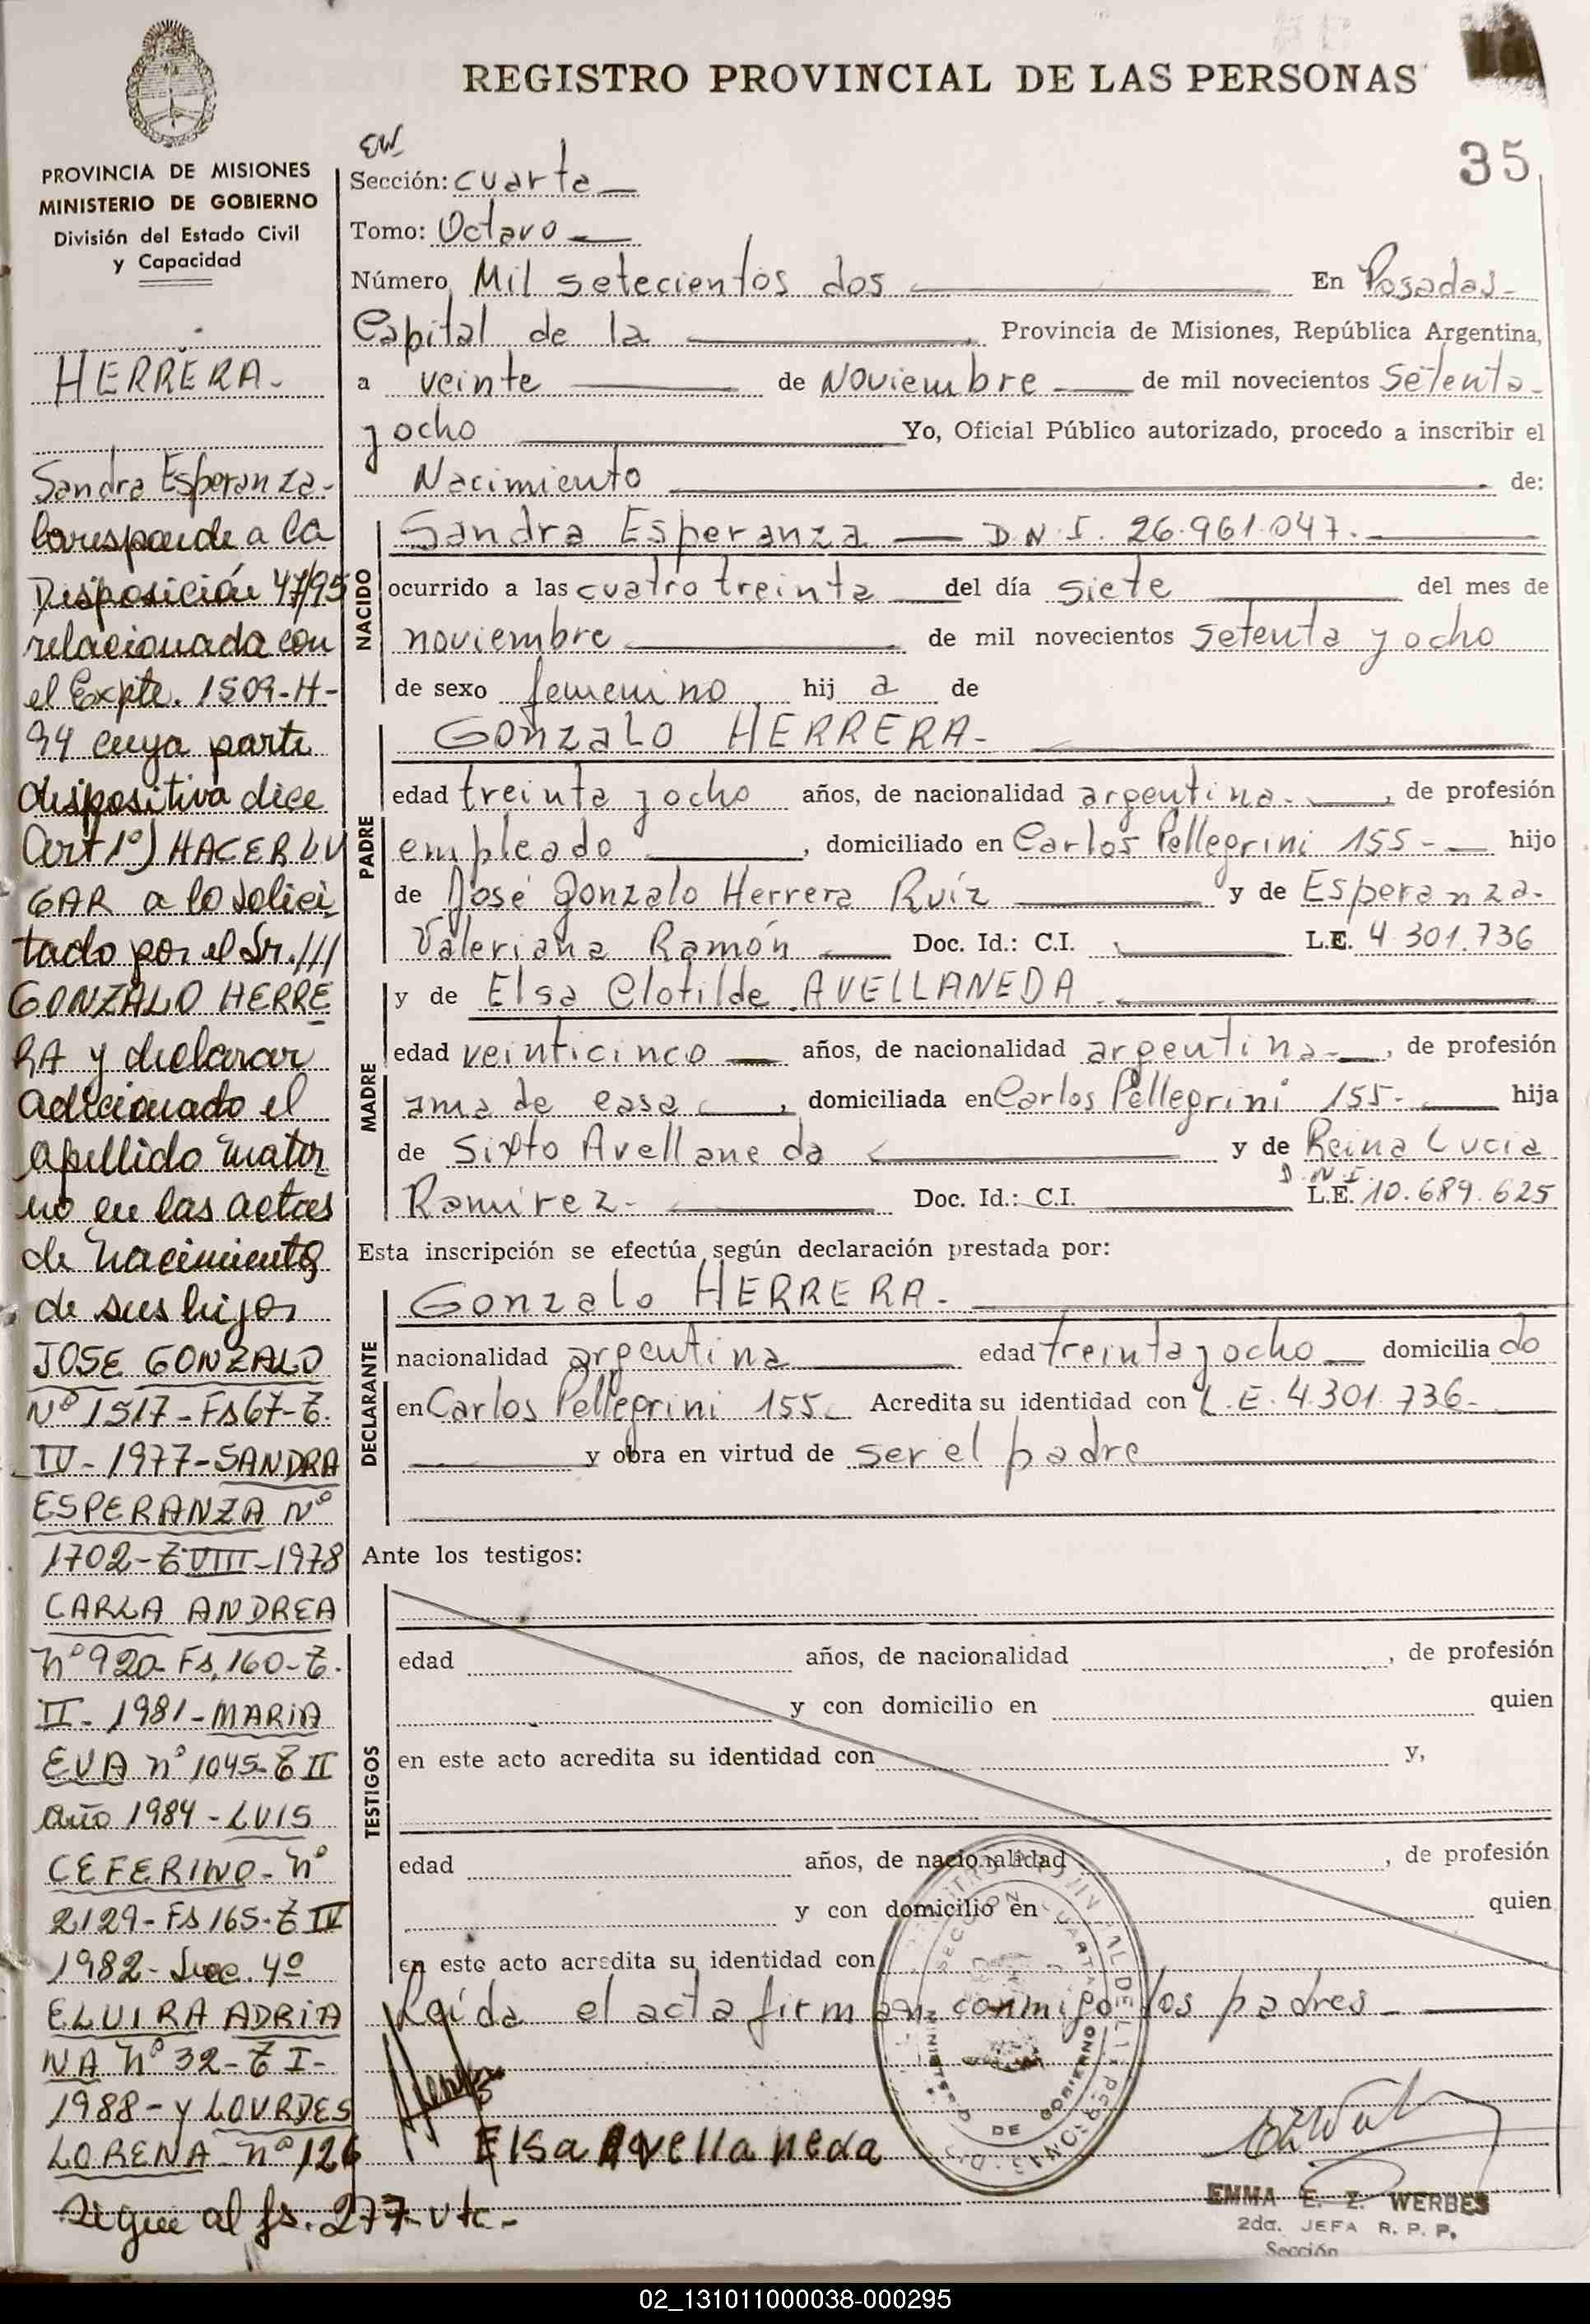 REGISTRO PROVINCIAL DE LAS PERSONAS
35
PROVINCIA DE MISIONES
MINISTERIO DE GOBIERNO
División del Estado Civil
y Capacidad
HERRERA.
Sandra Esperanza.
Corresponde a la
Disposición 47/95
relacionada con
el Expte. 1509-H-
94 cuya parte
dispositiva dice
Art 1º) HACER LU
GAR a lo solici
tado por el Sr.///
GONZALO HERRE
RA y declarar
adicionado el
apellido mater
no en las actas
de nacimientos
de sus hijos
JOSE GONZALO
Nº 1517-Fs 67-T.
IV-1977-SANDRA
ESPERANZA Nº
1702-T VIII-1978
CARLA ANDREA
nº 920-Fs.160-T.
II-1981-MARIA
EVA nº 1045-T II
Año 1984-LUIS
CEFERINO-nº
2129-Fs 165-T IV
1982-Secc. 4º
ELVIRA ADRIA
NA nº 32-T I-
1988-y LOURDES
LORENA-nº 126
Sigue al fs. 277-vta-
Sección: cuarta
Tomo: Octavo
Número Mil setecientos dos En Posadas-
Capital de la , Provincia de Misiones, República Argentina,
a veinte de Noviembre de mil novecientos setenta-
y ocho Yo, Oficial Público autorizado, procedo a inscribir el
Nacimiento de:
NACIDO
Sandra Esperanza — D.N.I. 26.961.047.
ocurrido a las cuatro treinta del día siete del mes de
noviembre de mil novecientos setenta y ocho
de sexo femenino hij a de
PADRE
Gonzalo HERRERA-
edad treinta y ocho años, de nacionalidad argentina. , de profesión
empleado , domiciliado en Carlos Pellegrini 155- hijo
de José Gonzalo Herrera Ruíz y de Esperanza-
Valeriana Ramón Doc. Id.: C.I. L.E. 4.301.736
MADRE
y de Elsa Clotilde AVELLANEDA
edad veinticinco años, de nacionalidad argentina- , de profesión
ama de casa , domiciliada en Carlos Pellegrini 155- hija
de Sixto Avellaneda y de Reina Lucia
D.N.I.
Ramírez- Doc. Id.: C.I. L.E. 10.689.625
Esta inscripción se efectúa según declaración prestada por:
DECLARANTE
Gonzalo HERRERA-
nacionalidad argentina edad treinta y ocho domicilia do
en Carlos Pellegrini 155. Acredita su identidad con L.E. 4.301.736-
y obra en virtud de ser el padre
Ante los testigos:
TESTIGOS
edad años, de nacionalidad , de profesión
y con domicilio en quien
en este acto acredita su identidad con y,
edad años, de nacionalidad , de profesión
y con domicilio en quien
en este acto acredita su identidad con
Leída el acta firman conmigo los padres
Elsa Avellaneda
SECCION CUARTA
MINISTERIO DE GOBIERNO
EMMA E. Z. WERBES
2da. JEFA R. P. P.
Sección
02_131011000038-000295